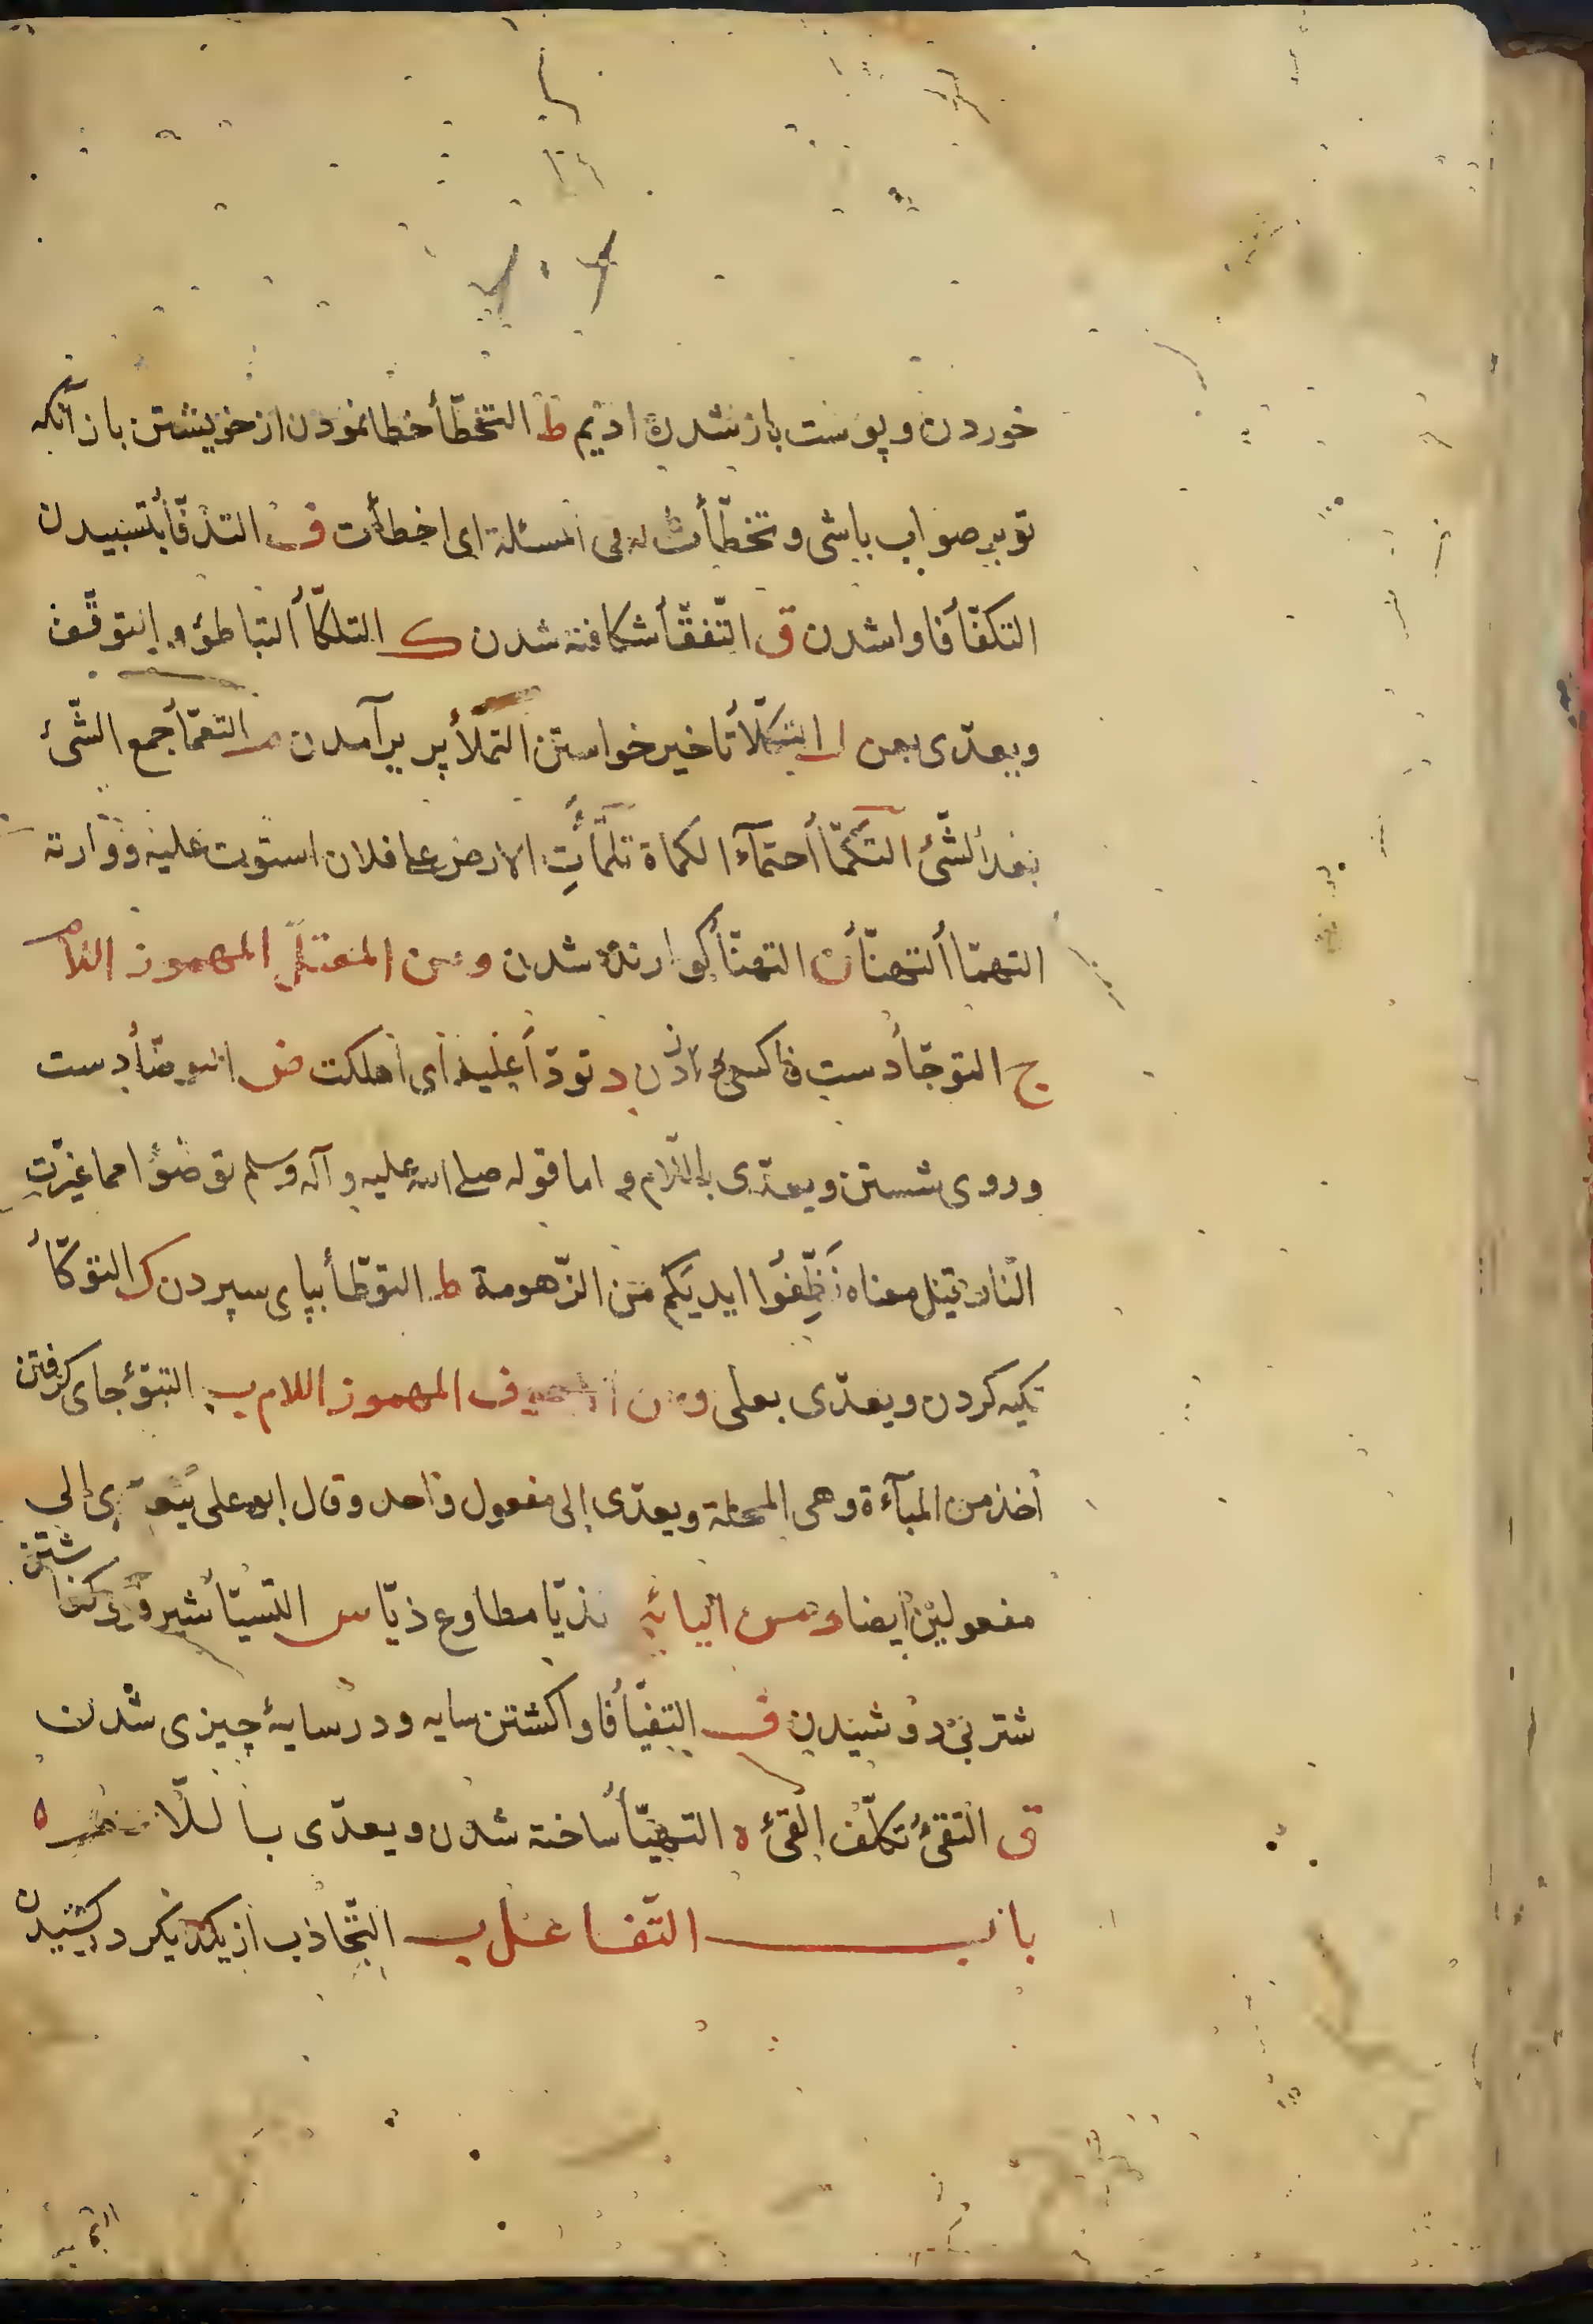 خوردن و پوست باز شدن ادیم ط التخطّأ خطا نمودن از خویشتن باز آنکه
تو بر صواب باشی و تخطّأت له فی المسئلة ای اخطأت ف التدفّأ بتسبیدن
التکفّأ فاوا شدن ق التّفقّأ شکافته شدن ک التلکّأ التباطؤ و التوقّف
ویعدّی بعن ل التکلّأ تاخیر خواستن التملّأ پر برآمدن م التقمّأ جمع الشّیٔ
بعد الشّیٔ التکمّأ اجتمآء الکماة تلمّأتِ الارض علی فلان استوت علیه ووارته
التهمّأ التهتّأ ن التهنّأ کوارنده شدن ومن المعتلّ المهموز اللام
ج التوجّأ دست فا کسی زدن د تودّأ علیه ای اهلکت ض التوضّأ دست
وروی شستن ویعدّی باللّام و اما قوله صلی الله علیه وآله وسلم توضّوا مما غیّرت
النّار قیل معناه نَظِّفُوا ایدیَکم من الزّهومة ط التوطّأ بپای سپردن ک التوکّأ
تکیه کردن ویعدّی بعلی ومن الاجوف المهموز اللام ب التبؤّ جای کرفتن
أخذ من المبآءة وهی المحلة ویعدّی إلی مفعول واحد وقال ابو علی یتعدّی إلی
مفعولین ایضا ومن الیائیّ تذیّأ مطاوع ذیّأ س التسیّأ شیر فرو کذاشتن
شتر بی دوشیدن ف التفیّأ فاوا کشتن سایه ودر سایۀ چیزی شدن
ق التقیّٔ تکلّف القیٔ ه التهیّأ ساخته شدن ویعدّی باللّام
باب التّفاعل ب التّجاذب از یکدیکر درکشیدن